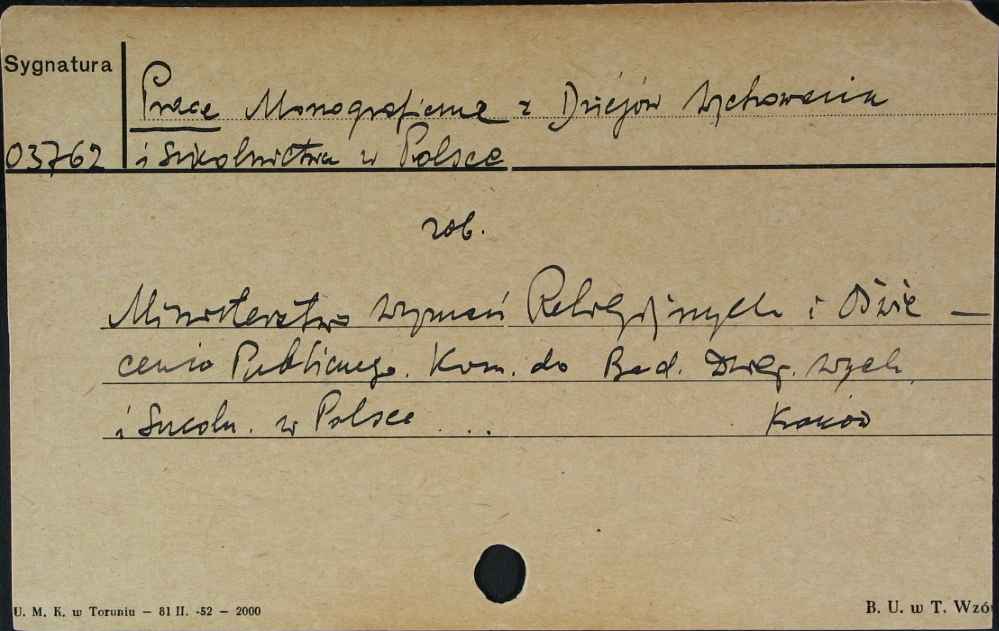 Sygnatura
Prace Monograficzne z Dziejów Wychowania
03762
i Szkolnictwa w Polsce
zob.
Ministerstwo Wyznań Religijnych i Oświe –
cenia Publicznego. Kom. do Bad. Dziej. Wych.
i Szkoln. w Polsce ...
Kraków
U. M. K. w Toruniu – 81 II. -52 – 2000
B. U. w T. Wzó